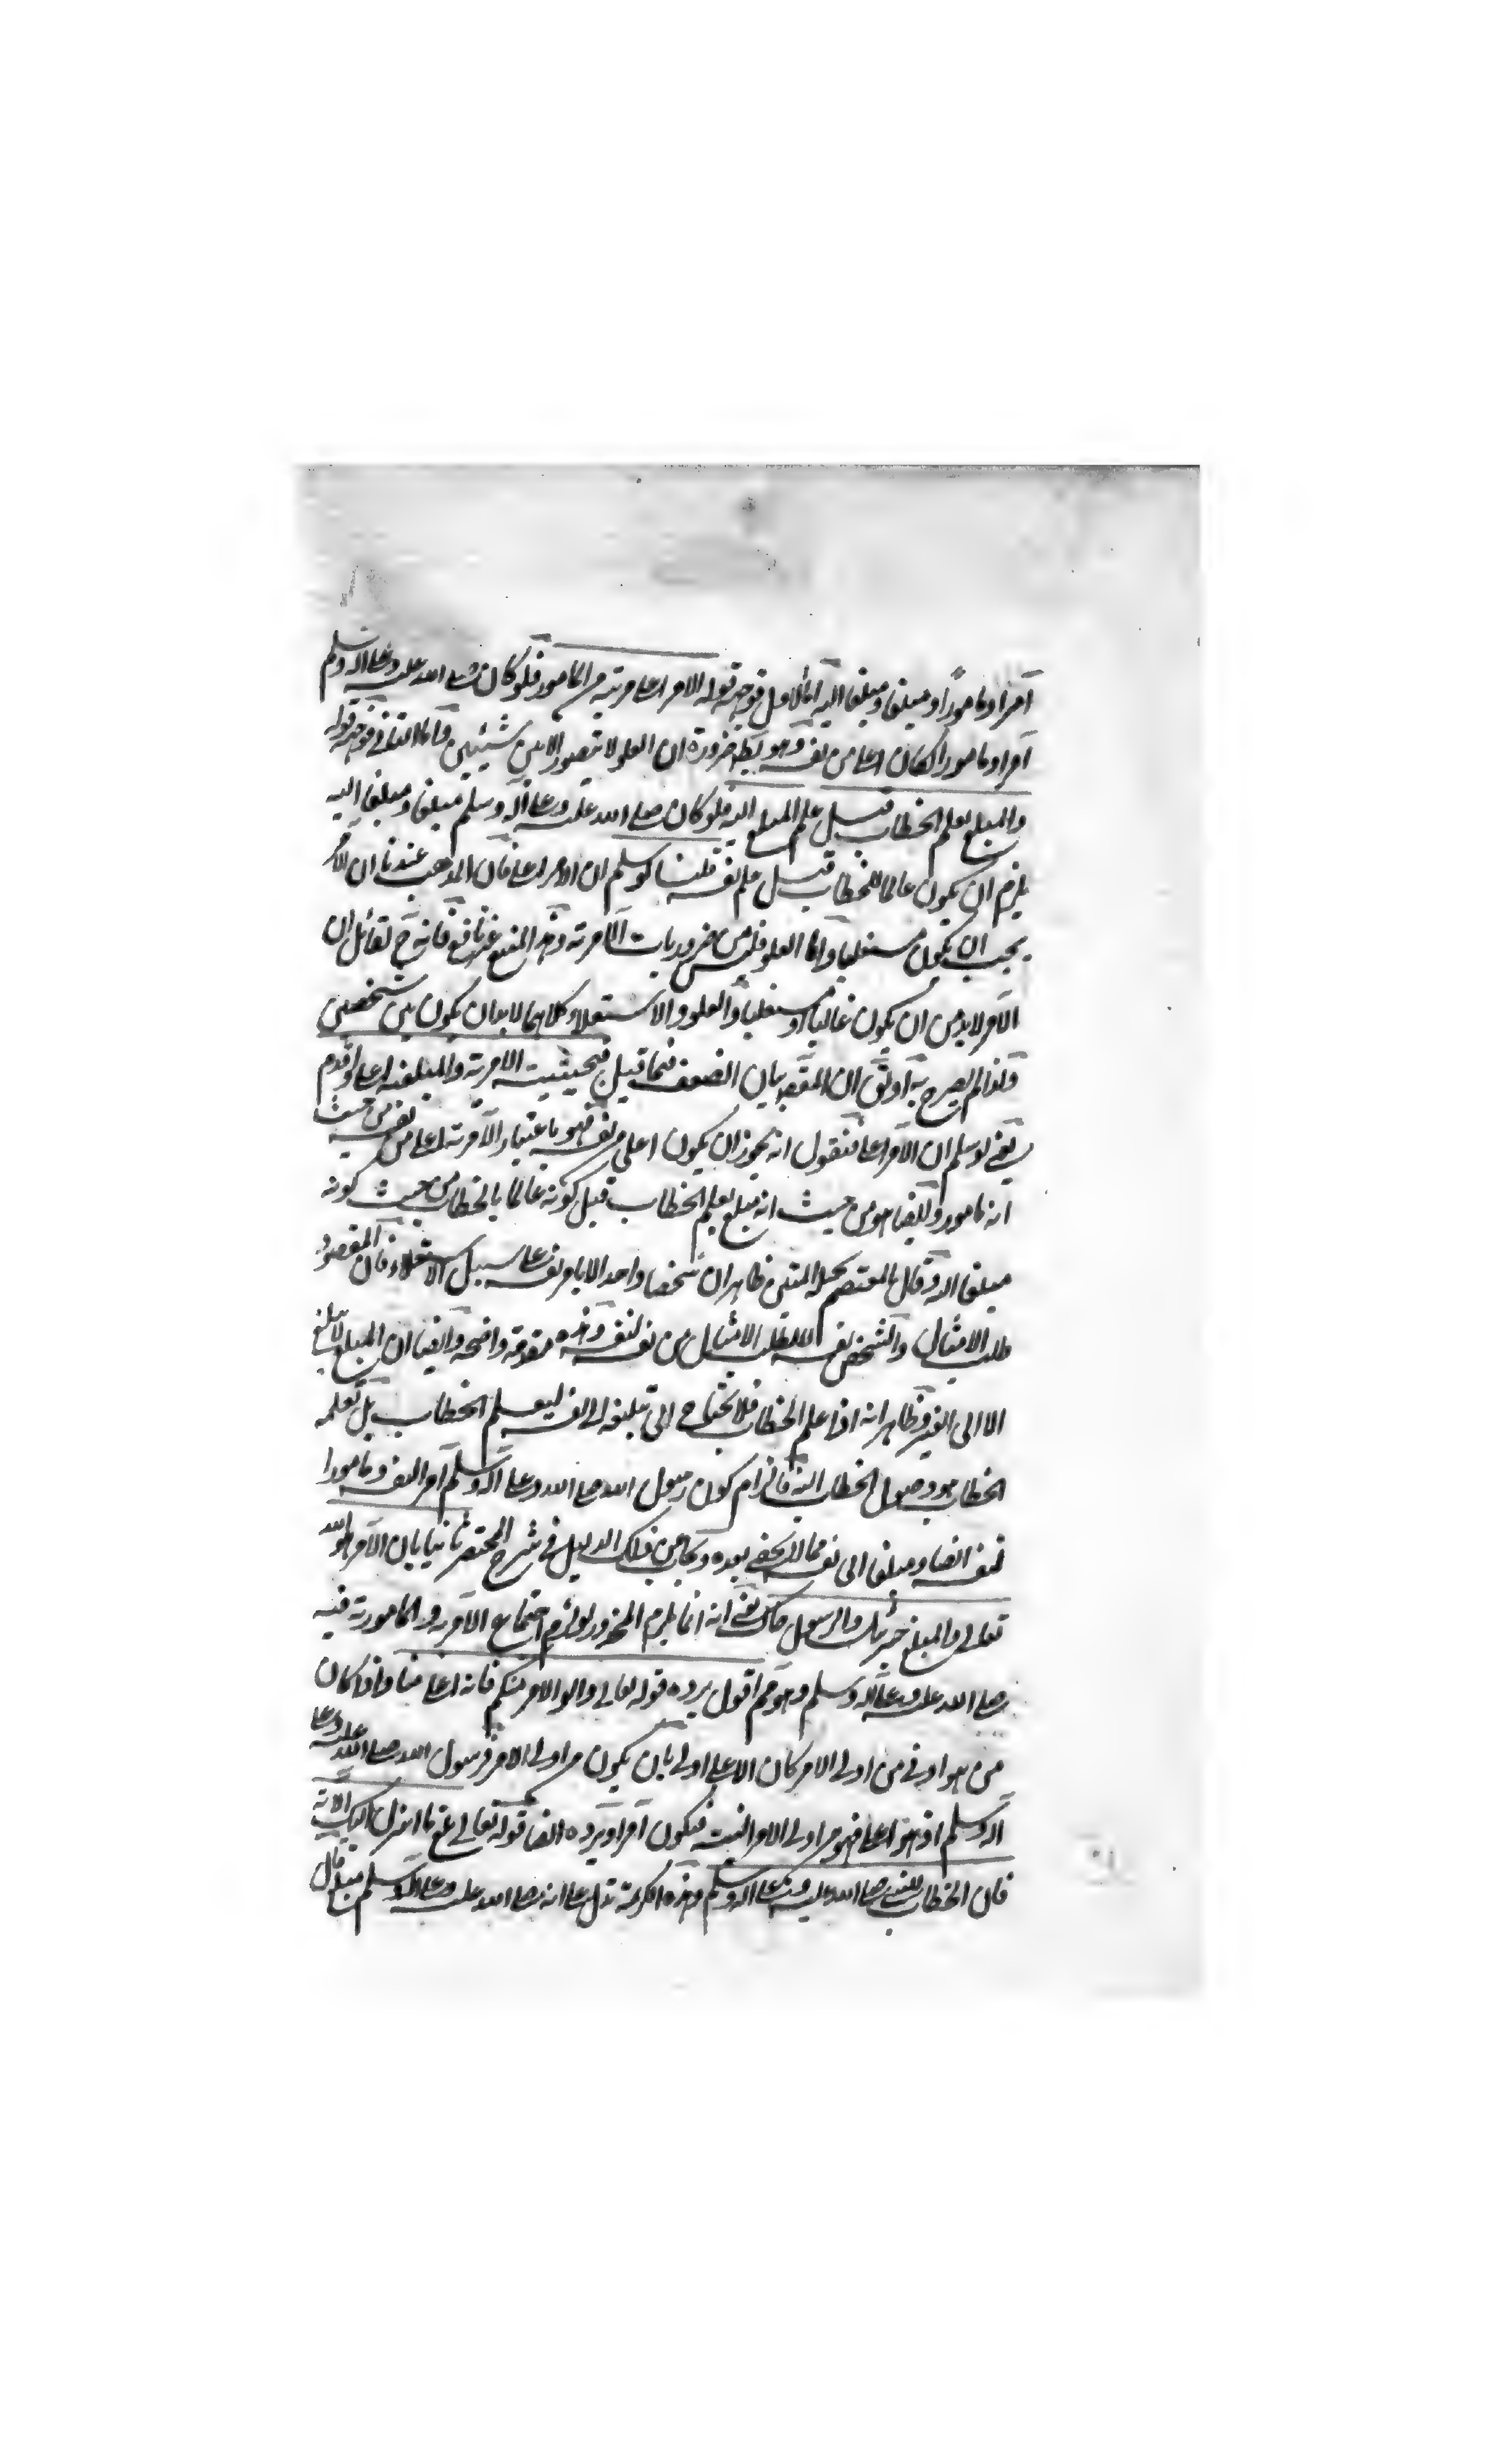 آمرا ومامورا ومبلغا ومبلغا اليه اما الاول فوجهه قوله الامر اعلى مرتبة من المامور فلو كان صلى الله عليه وعلى اله وسلم
آمرا ومامورا لكان اعلى من نفسه وهو بط ضرورة ان العلو لا يتصور الا بين شيئين واما الثاني فوجهه قوله
والمبلغ يعلم الخطاب قبل علم المبلغ اليه فلو كان صلى الله عليه وعلى آله وسلم مبلغا ومبلغا اليه
يلزم ان يكون عالما للخطاب قبل علم نفسه قلنا لو سلم ان الامر اعلى فان المذهب عندنا ان الآمر
يجب ان يكون مستعليا واما العلو فليس من ضروريات الآمرية وهذا المنع غير نافع فانه ح لقائل ان
الآمر لا بد من ان يكون عاليا او مستعليا والعلو والاستعلاء كلاهما لا بد ان يكون بين شخصين
ولذا لم يصرح به او لان المقصد بيان الضعف فيما قيل فبحيثيت الامرية والمبلغية اعلى واقدم
يعني لو سلم ان الآمر اعلى فنقول انه يجوز ان يكون اعلى من نفسه فهو باعتبار الآمرية اعلى من نفسه من حيث
انه مامور وايضا هو من حيث انه مبلغ يعلم الخطاب قبل كونه عالما بالخطاب من حيث كونه
مبلغا اليه وقال المعتصم بحبله المتين ظاهر ان شخصا واحدا لا يامر نفسه على سبيل الاستعلاء فان المقصود
طلب الامتثال والشخص نفسه لا يطلب الامتثال من نفسه لنفسه وهذه مقدمة واضحة وايضا ان المبلغ لا يبلغ
الا الى الغير وظاهر انه اذا علم الخطاب فلا يحتاج الى تبليغه الى نفسه ليعلم الخطاب بل تعلمه
الخطاب هو وصول الخطاب اليه فالزام كون رسول الله صلى الله وعلى اله وسلم آمرا لنفسه ومامورا
لنفسه ايضا ومبلغا الى نفسه مما لا يخفى بعده وعن ذلك الدليل في شرح المختصر ثانيا بان الآمر هو الله
تعالى والمبلغ جبرئيل والرسول حاك يعني انه انما يلزم المحذور لو لزم اجتماع الآمرية والمامورية فيه
صلى الله عليه وعلى اله وسلم وهو مم اقول يرده قوله تعالى واولو الامر منكم فانه اعلى منا واذا كان
من هو ادنى من اولى الامر كان الاعلى اولى بان يكون من اولى الامر فرسول الله صلى الله عليه وعلى
اله وسلم اذ هو اعلى فهو من اولى الامر البتة فيكون آمرا ويرده ايضا قوله تعالى بلغ ما انزل اليك الاية
فان الخطاب للنبي صلى الله عليه وعلى اله وسلم وهذه الكريمة تدل على انه صلى الله عليه وعلى اله وسلم مبلغ قال